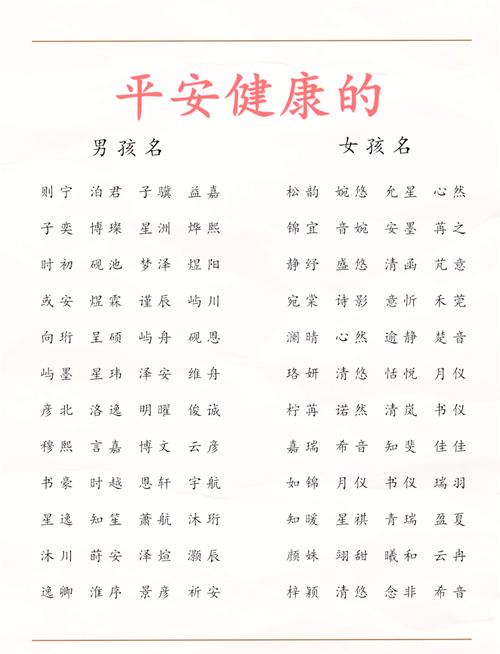 平安健康的
男孩名
则宁 泊君 子骥 益嘉
子奕 博璨 星洲 烨熙
时初 砚池 梦泽 煜阳
或安 煜霖 谨辰 屿川
向珩 呈硕 屿舟 砚恩
屿墨 星玮 泽安 维舟
彦北 洛逸 明曜 俊诚
穆熙 言嘉 博文 云彦
书豪 时越 恩轩 宇航
星逸 知笙 萧航 沐珩
沐川 莳安 泽煊 灏辰
逸卿 淮序 景彦 祈安
女孩名
松韵 婉悠 允星 心然
锦宜 音婉 安墨 苒之
静纾 盛悠 清函 芃意
宛棠 诗影 意忻 禾莞
澜晴 心然 逾静 楚音
珞妍 清悠 恬悦 月仪
柠苒 诺然 清岚 书仪
嘉瑞 希音 知斐 佳佳
如锦 月仪 书仪 瑞羽
知暖 星祺 青瑞 盈夏
颜姝 翊甜 曦和 云冉
梓颖 清悠 念非 希音